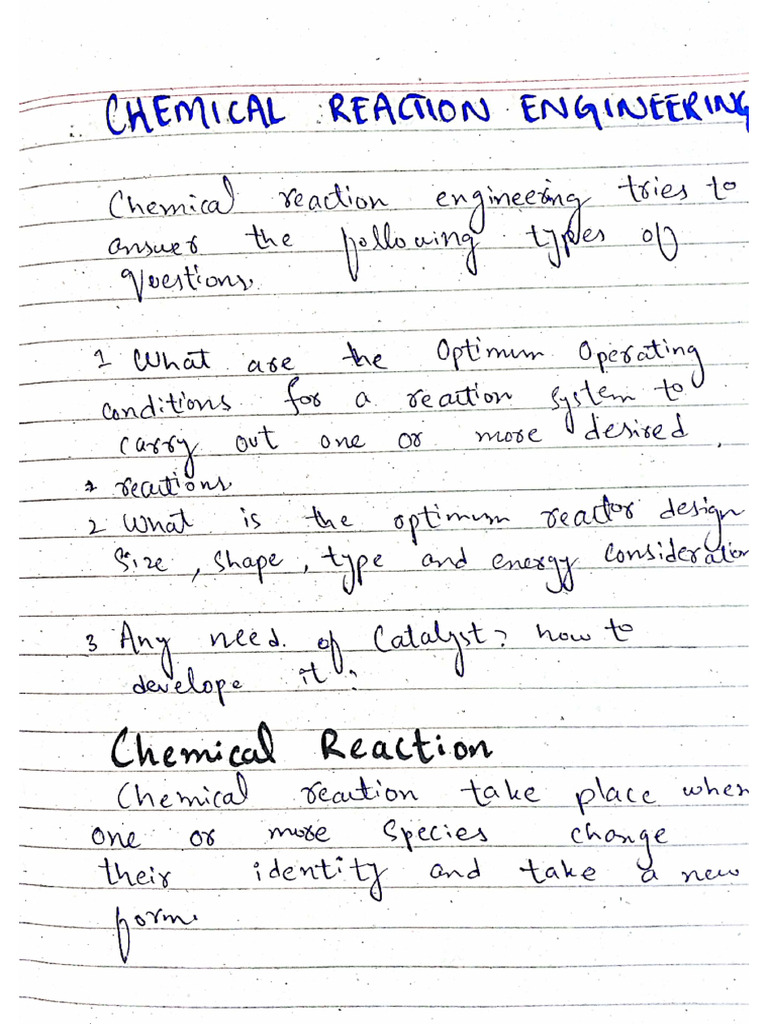 CHEMICAL REACTION ENGINEERING
Chemical reaction engineering tries to
answer the following types of
questions.
1 What are the Optimum Operating
conditions for a reaction system to
carry out one or more desired
reactions.
2 What is the optimum reactor design
Size, shape, type and energy consideration
3 Any need of Catalyst? how to
develope it?
Chemical Reaction
Chemical reaction take place when
one or more species change
their identity and take a new
form.